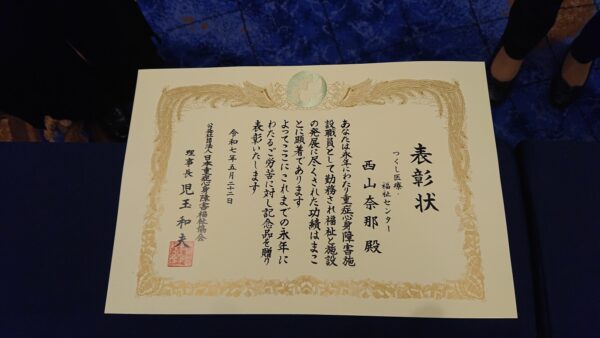 表彰状
つくし医療・
福祉センター
西山奈那 殿
あなたは永年にわたり重症心身障害施
設職員として勤務され福祉と施設
の発展に尽くされた功績はまこ
とに顕著であります
よってここにこれまでの永年に
わたるご労苦に対し記念品を贈り
表彰いたします
令和七年五月二十二日
公益社団法人日本重症心身障害福祉協会
理事長 児玉和夫